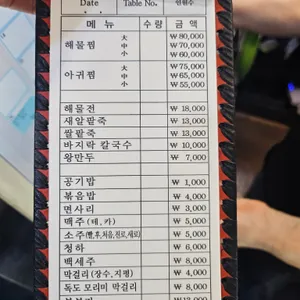 Date Table No. 인원수
메 뉴 수 량 금 액
해물찜 大 ₩ 80,000
中 ₩ 70,000
小 ₩ 60,000
아귀찜 大 ₩ 75,000
中 ₩ 65,000
小 ₩ 55,000
해물전 ₩ 18,000
새알팥죽 ₩ 13,000
쌀팥죽 ₩ 13,000
바지락 칼국수 ₩ 10,000
왕만두 ₩ 7,000
공기밥 ₩ 1,000
볶음밥 ₩ 4,000
면사리 ₩ 3,000
맥주 (테, 카) ₩ 5,000
소주 (빨,후,처음,진로,새로) ₩ 5,000
청하 ₩ 6,000
백세주 ₩ 8,000
막걸리 (장수,지평) ₩ 4,000
독도 오리미 막걸리 ₩ 8,000